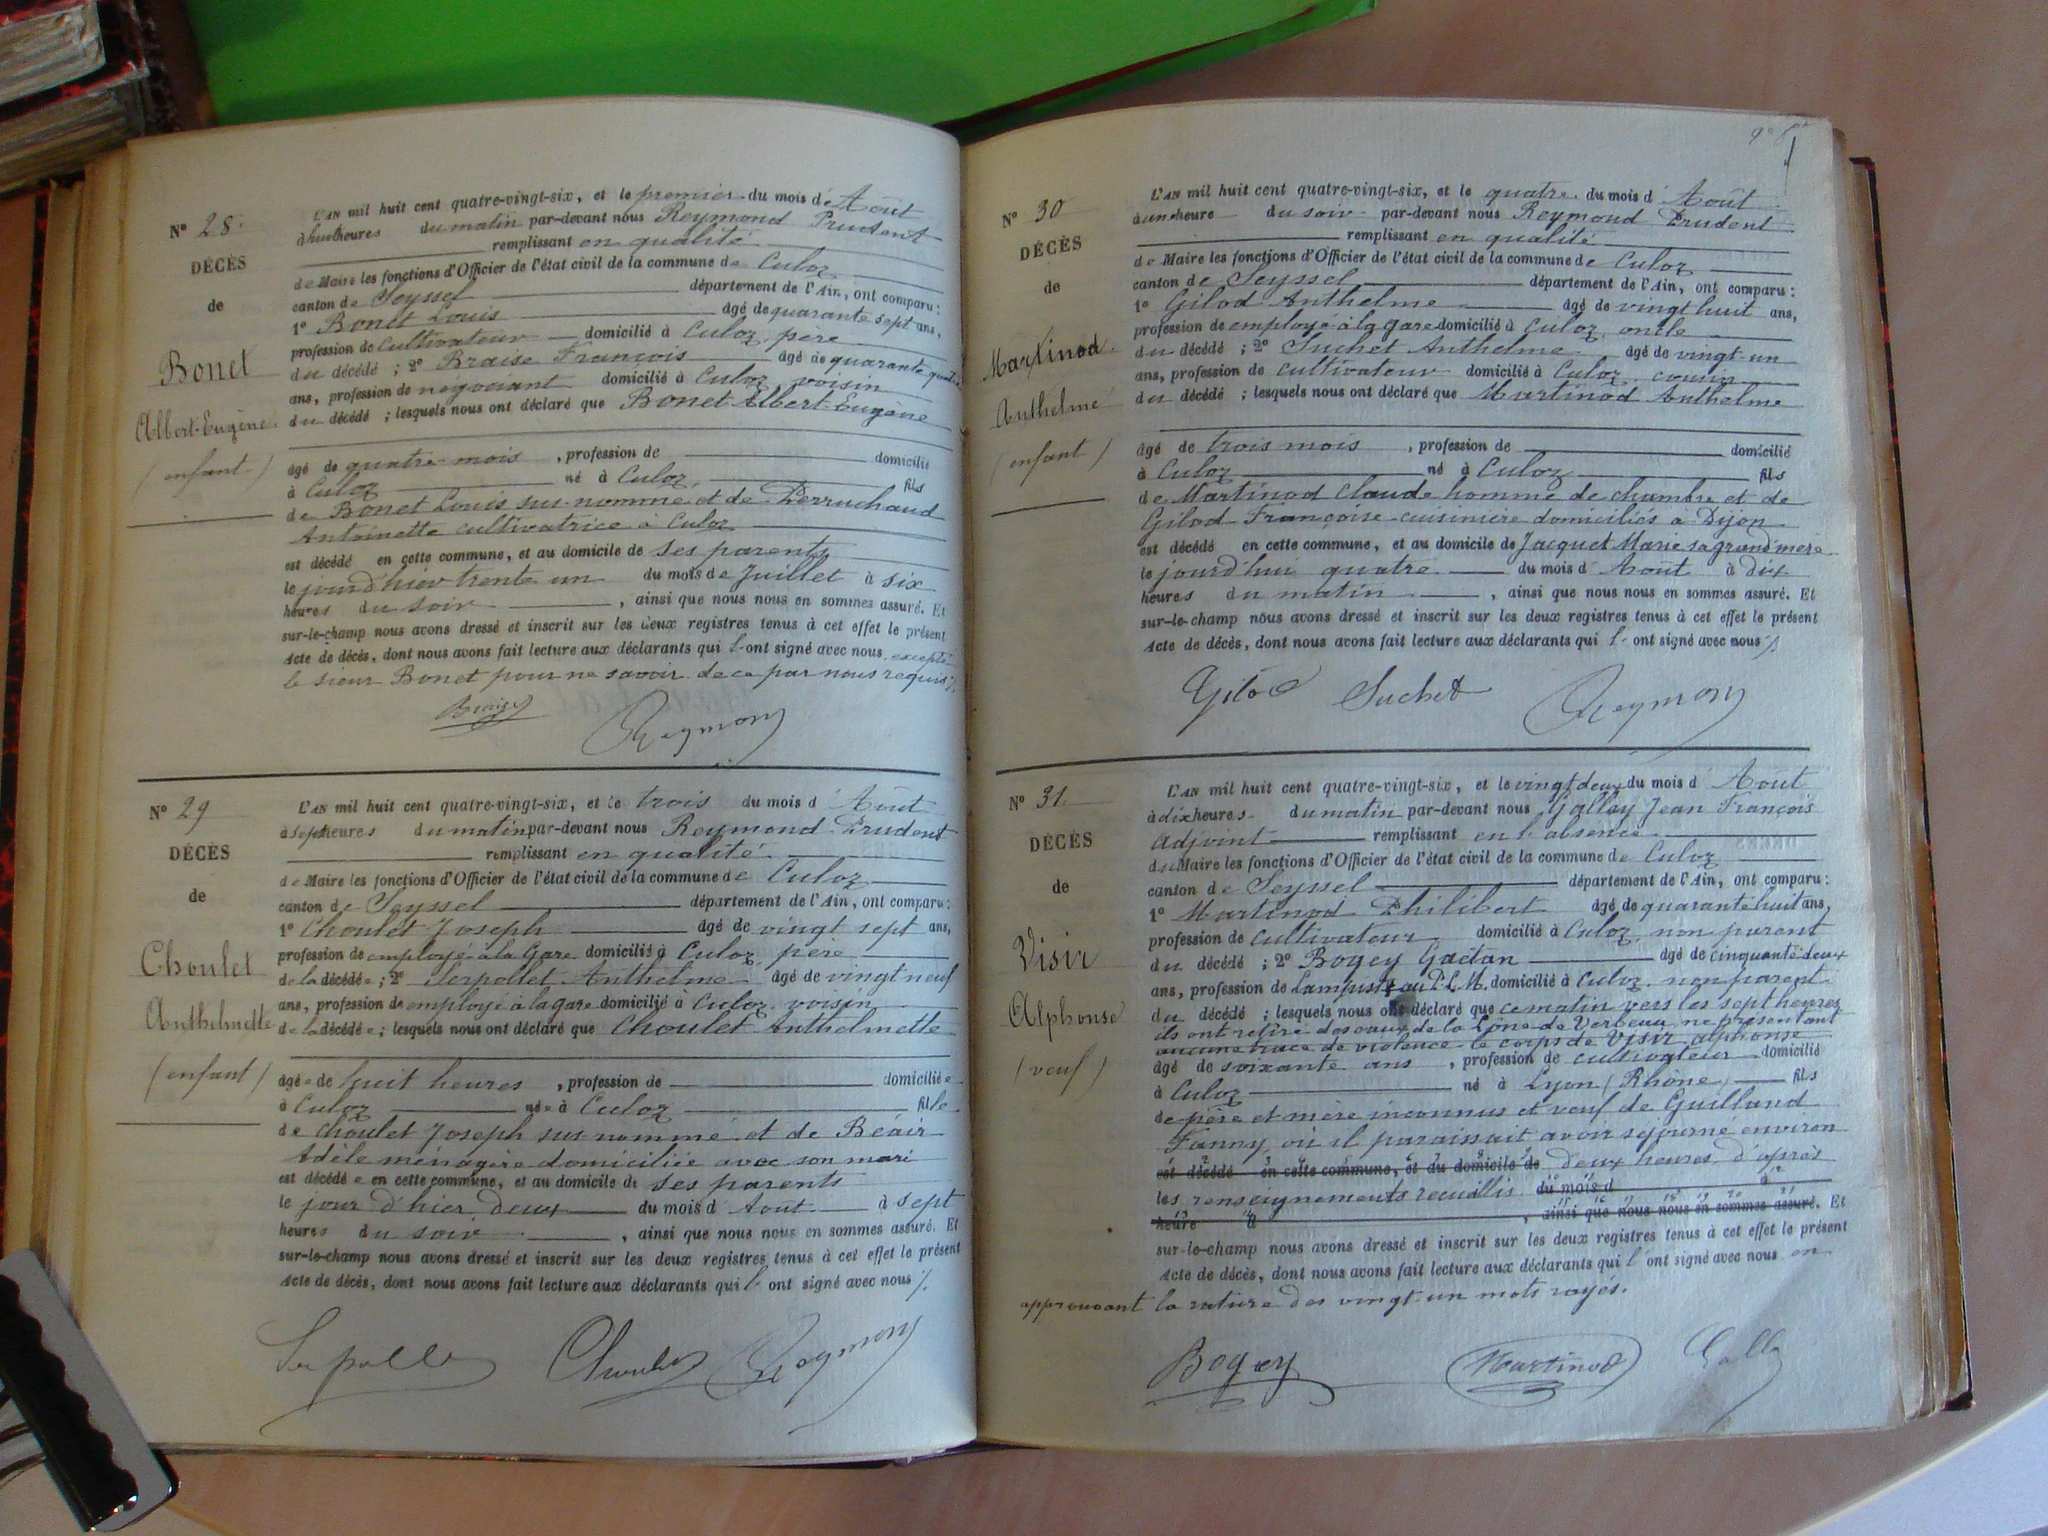 N° 28.
DÉCÈS
de
Bonet
Albert-Eugène.
(enfant)
L'AN mil huit cent quatre-vingt-six, et le premier du mois d'Août
à huit heures du matin par-devant nous Reymond Prudent
remplissant en qualité
de Maire les fonctions d'Officier de l'état civil de la commune de Culoz
canton de Seyssel département de l'Ain, ont comparu :
1° Bonet Louis âgé de quarante sept ans,
profession de cultivateur domicilié à Culoz, père
du décédé ; 2° Braise François âgé de quarante quatre
ans, profession de négociant domicilié à Culoz, voisin
du décédé ; lesquels nous ont déclaré que Bonet Albert-Eugène
âgé de quatre mois , profession de domicilié
à Culoz né à Culoz fils
de Bonet Louis sus-nommé et de Perruchaud
Antoinette cultivatrice à Culoz
est décédé en cette commune, et au domicile de ses parents
le jourd'hier trente un du mois de Juillet à six
heures du soir , ainsi que nous nous en sommes assuré. Et
sur-le-champ nous avons dressé et inscrit sur les deux registres tenus à cet effet le présent
Acte de décès, dont nous avons fait lecture aux déclarants qui l'ont signé avec nous excepté
le sieur Bonet pour ne savoir de ce par nous requis ./.
Reymon
N° 29
DÉCÈS
de
Choulet
Anthelmette
(enfant)
L'AN mil huit cent quatre-vingt-six, et le trois du mois d'Août
à sept heures du matin par-devant nous Reymond Prudent
remplissant en qualité
de Maire les fonctions d'Officier de l'état civil de la commune de Culoz
canton de Seyssel département de l'Ain, ont comparu :
1° Choulet Joseph âgé de vingt sept ans,
profession de employé à la Gare domicilié à Culoz, père
de la décédée ; 2° Serpollet Anthelme âgé de vingt neuf
ans, profession de employé à la gare domicilié à Culoz voisin
de la décédée ; lesquels nous ont déclaré que Choulet Anthelmette
âgée de huit heures , profession de domiciliée
à Culoz née à Culoz fille
de Choulet Joseph sus-nommé et de Béair
Adèle ménagère domiciliée avec son mari
est décédée en cette commune, et au domicile de ses parents
le jour d'hier deux du mois d'Août à sept
heures du soir , ainsi que nous nous en sommes assuré. Et
sur-le-champ nous avons dressé et inscrit sur les deux registres tenus à cet effet le présent
Acte de décès, dont nous avons fait lecture aux déclarants qui l'ont signé avec nous ./.
Serpolle Choulet Reymon
N° 30
DÉCÈS
de
Martinod.
Anthelme
(enfant)
L'AN mil huit cent quatre-vingt-six, et le quatre du mois d'Août
à une heure du soir par-devant nous Reymond Prudent
remplissant en qualité
de Maire les fonctions d'Officier de l'état civil de la commune de Culoz
canton de Seyssel département de l'Ain, ont comparu :
1° Gilod Anthelme âgé de vingt huit ans,
profession de employé à la gare domicilié à Culoz, oncle
du décédé ; 2° Suchet Anthelme âgé de vingt-un
ans, profession de cultivateur domicilié à Culoz, cousin
du décédé ; lesquels nous ont déclaré que Martinod Anthelme
âgé de trois mois , profession de domicilié
à Culoz né à Culoz fils
de Martinod Claude homme de chambre et de
Gilod Françoise cuisinière domiciliés à Dijon
est décédé en cette commune, et au domicile de Jacquet Marie sa grand'mère
le jourd'hui quatre du mois d'Août à dix
heures du matin , ainsi que nous nous en sommes assuré. Et
sur-le-champ nous avons dressé et inscrit sur les deux registres tenus à cet effet le présent
Acte de décès, dont nous avons fait lecture aux déclarants qui l'ont signé avec nous ./.
Gilod Suchet Reymon
N° 31.
DÉCÈS
de
Visir
Alphonse
(veuf)
L'AN mil huit cent quatre-vingt-six, et le vingt deux du mois d'Août
à dix heures du matin par-devant nous Galley Jean François
adjoint remplissant en l'absence
du Maire les fonctions d'Officier de l'état civil de la commune de Culoz
canton de Seyssel département de l'Ain, ont comparu :
1° Martinod Philibert âgé de quarante huit ans,
profession de cultivateur domicilié à Culoz, non parent
du décédé ; 2° Bogey Gaëtan âgé de cinquante deux
ans, profession de Lampiste au P.L.M. domicilié à Culoz non parent
du décédé ; lesquels nous ont déclaré que ce matin vers les sept heures
ils ont retiré des eaux de la Lône de Verbeau, ne présentant
aucune trace de violence le corps de Visir alphonse
âgé de soixante ans , profession de cultivateur domicilié
à Culoz né à Lyon (Rhône) fils
de père et mère inconnus et veuf de Guilland
Fanny, où il paraissait avoir séjourné environ
est décédé en cette commune, et du domicile de deux heures d'après
les renseignements recueillis du mois d à
heure d , ainsi que nous nous en sommes assuré. Et
sur-le-champ nous avons dressé et inscrit sur les deux registres tenus à cet effet le présent
Acte de décès, dont nous avons fait lecture aux déclarants qui l'ont signé avec nous en
approuvant la rature des vingt-un mots rayés.
Bogey Martinod Galle